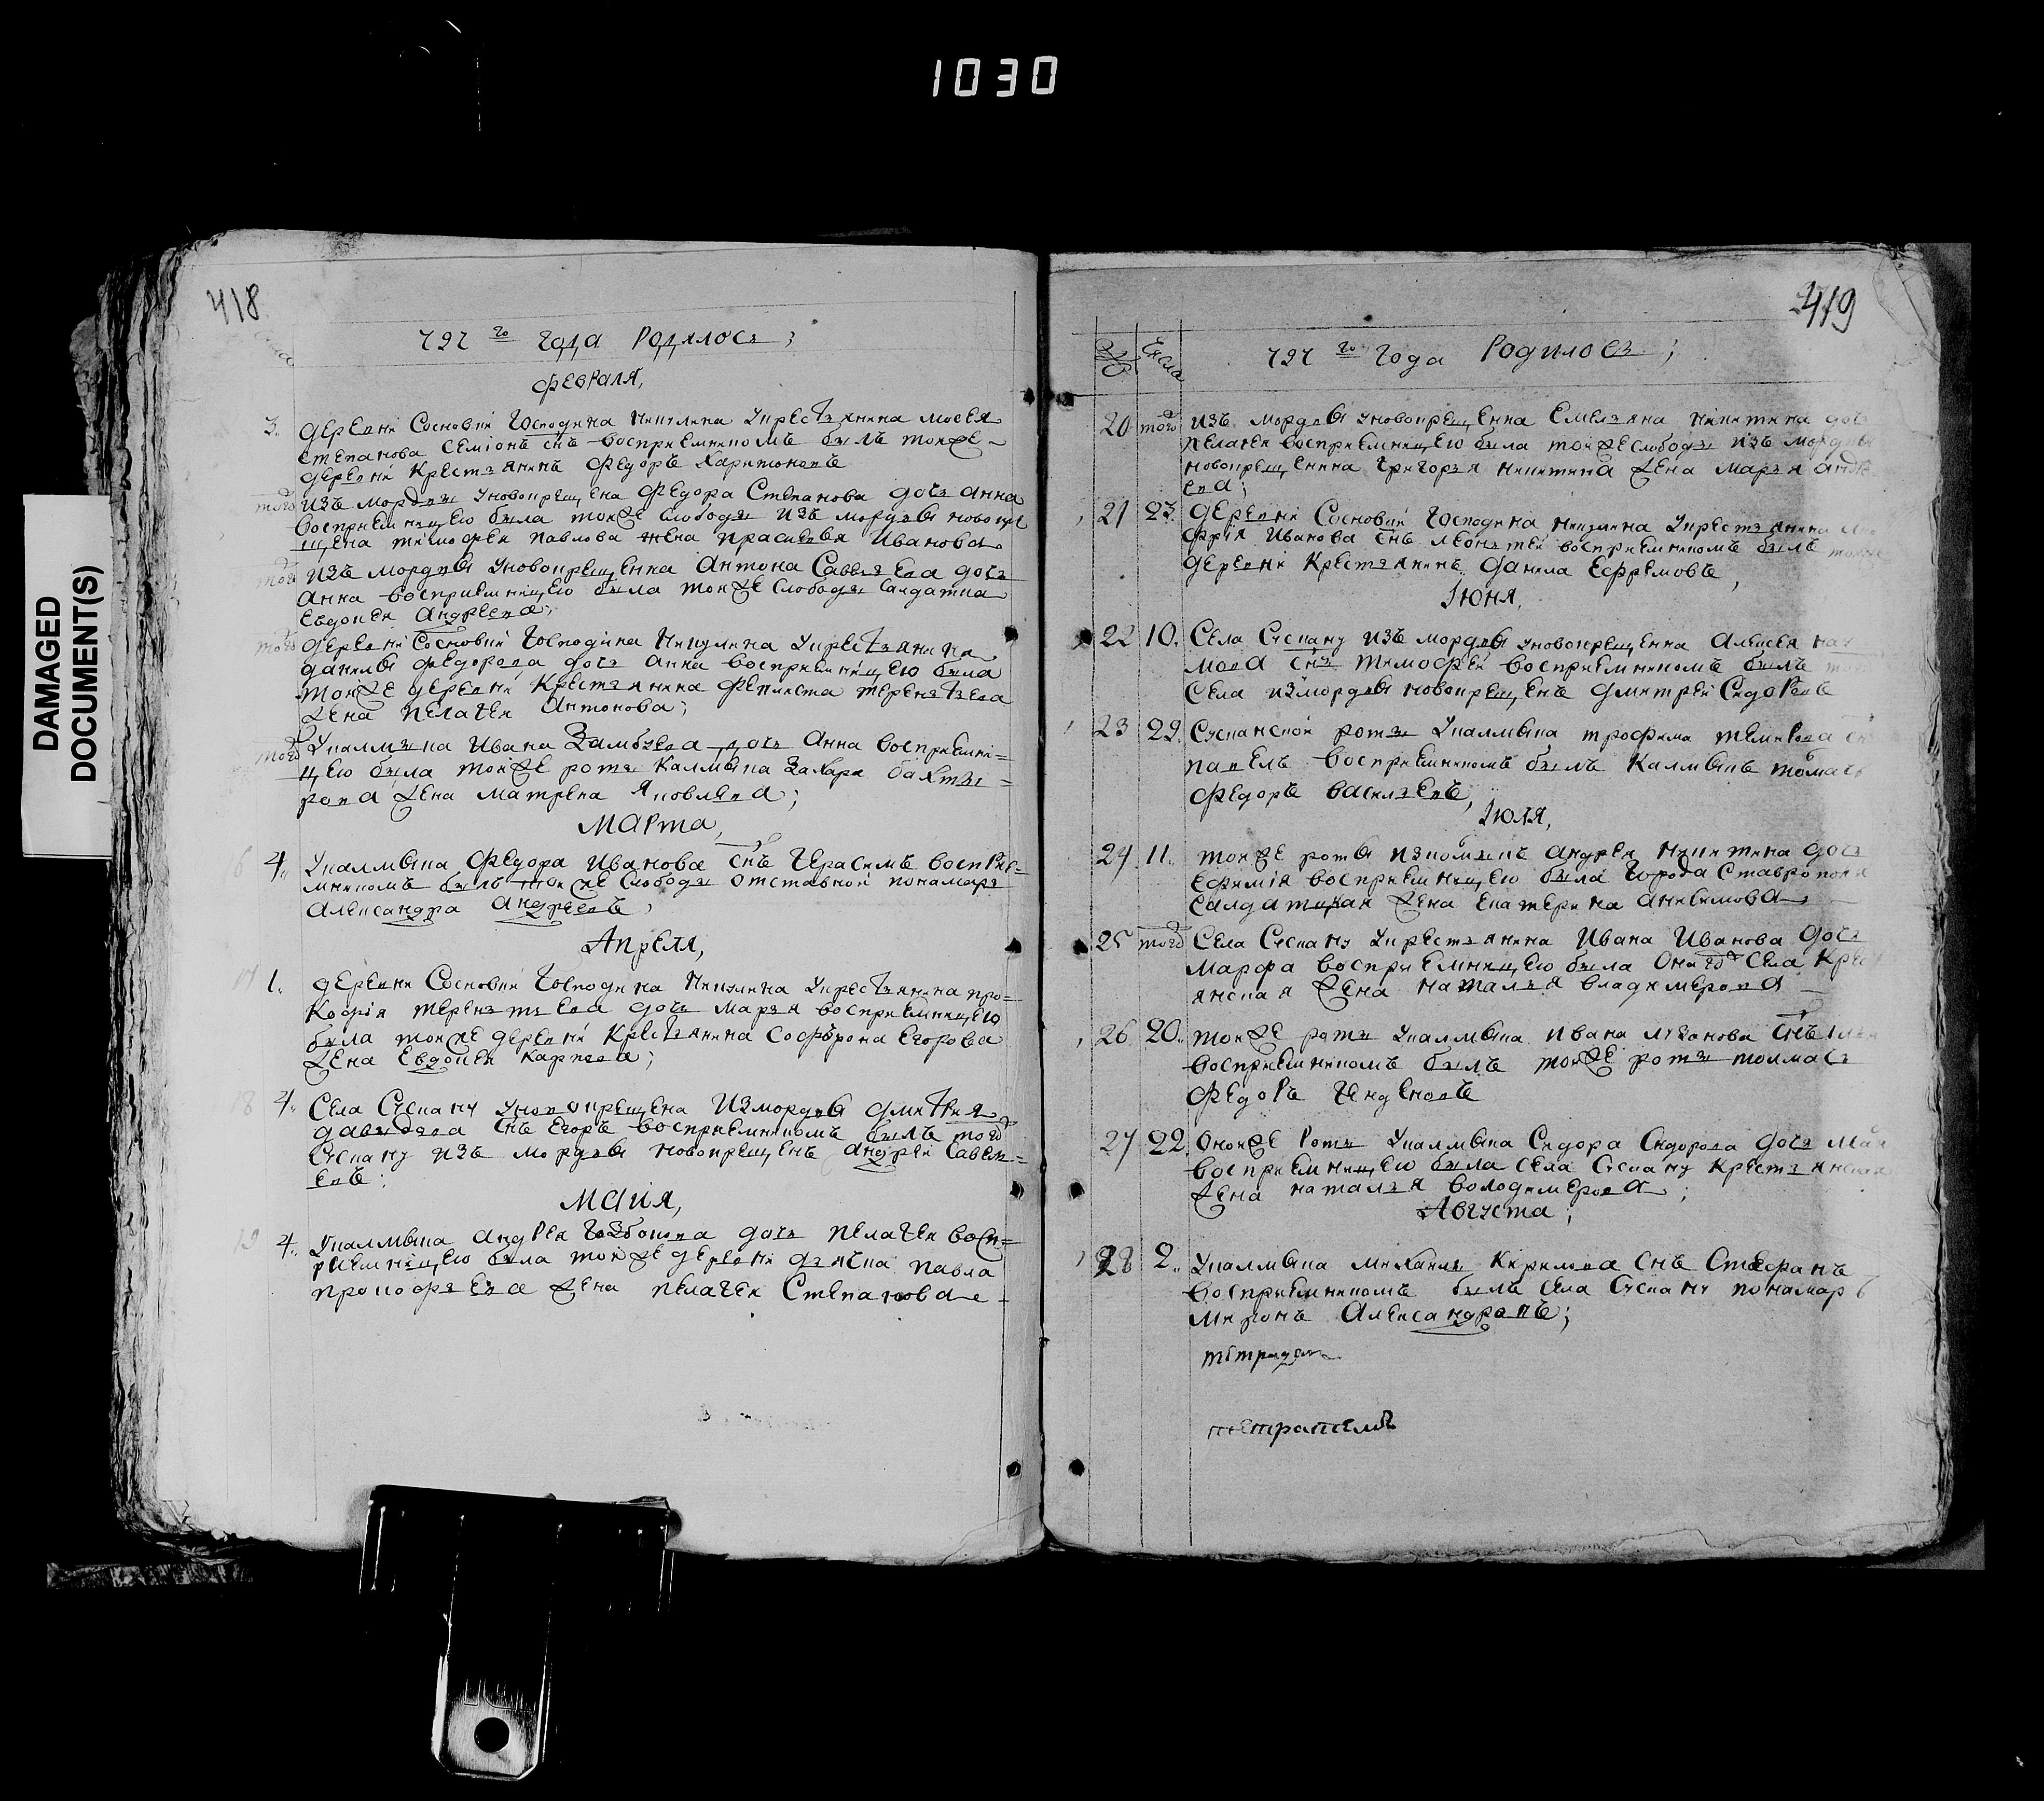 1030
DAMAGED
DOCUMENT(S)
418
797 го года родилось;
февраля,
3. деревни Сосновки господина Никулина укрестьянина Мосея
Степанова Семіонъ снъ восприемникомъ былъ тоиже
деревни крестьянинъ Федоръ Харитоновъ
того изъ мордвы уновокрещена Федора Степанова дочь анна
восприемницею была тоиже слободы изъ мордвы новокре
щена тимофея павлова жена прасковья Иванова
того изъ мордвы уновокрещенна Антона Савельева дочь
анна восприемницею была тоиже слободы салдатка
Евдокея андреева;
того деревни Сосновки господина Никулина укрестьянина
данилы федорова дочь анна восприемницею была
тоиже деревни крестьянина терентьева
жена пелагея антонова;
того укалмыка Ивана дочь анна восприемни=
цею была тоиже роты калмыка Захара бахты=
рова жена матрена яковлева;
Марта,
4. укалмыка Федора Иванова снъ герасимъ восприе=
мникомъ былъ тоиже слободы отставной понамарь
александра андреевъ;
Апреля,
17 1. деревни Сосновки господина Никулина укрестьянина про=
кофія терентьева дочь марья восприемницею
была тоиже деревни крестьянина Софрона Егорова
жена Евдокея карпова;
18 4. Села Сускану уновокрещена измордвы дмитрия
давыдова снъ Егоръ восприемникомъ былъ того
Сускану изъ мордвы новокрещенъ андрей савель=
евъ;
Маия,
19 4. укалмыка андрея дочь пелагея восп=
риемницею была тоиже деревни дьячка павла
прокофьева жена пелагея Степанова
419
Числа
797 го года родилось;
20 того изъ мордвы уновокрещенна Емельяна никитина дочь
пелагея восприемницею была тоиже слободы изъ мордвы
новокрещенина григорья никитина жена марья андре
ева;
21 23. деревни Сосновки господина никулина укрестьянина
Иванова снъ леонтей восприемникомъ былъ тоиже
деревни крестьянинъ данила Ефремовъ,
Июня,
22 10. Села Сускану изъ мордвы уновокрещенна алексея
снъ тимофей восприемникомъ былъ
села измордвы новокрещенъ дмитрей
23 29. Сусканской роты укалмыка трофима
павелъ восприемникомъ былъ калмыкъ
Федоръ васильевъ,
Июля,
24 11. тоиже роты андрея никитина дочь
Ефимія восприемницею была города Ставрополя
салдатская жена екатерина анисимова
25 того Села Сускану укрестьянина Ивана Иванова дочь
марфа восприемницею была Оного села крест
янская жена наталья владимерова
26 20. тоиже роты укалмыка ивана снъ
восприемникомъ былъ тоиже роты толмачь
Федоръ
27 22 Оноиже роты укалмыка Сидора Сидорова дочь
восприемницею была села Сускану крестьянская
жена наталья володимерова;
Августа;
28 2. укалмыка михаила кирилова снъ Стефанъ
восприемникомъ былъ села Сускану понамар
миронъ александровъ;